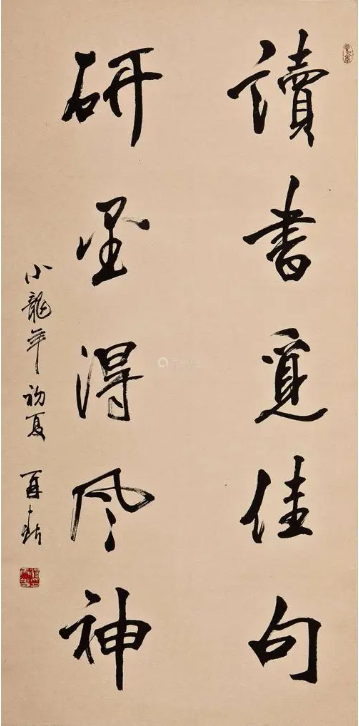 讀書覓佳句
研墨得风神
小龍年初夏